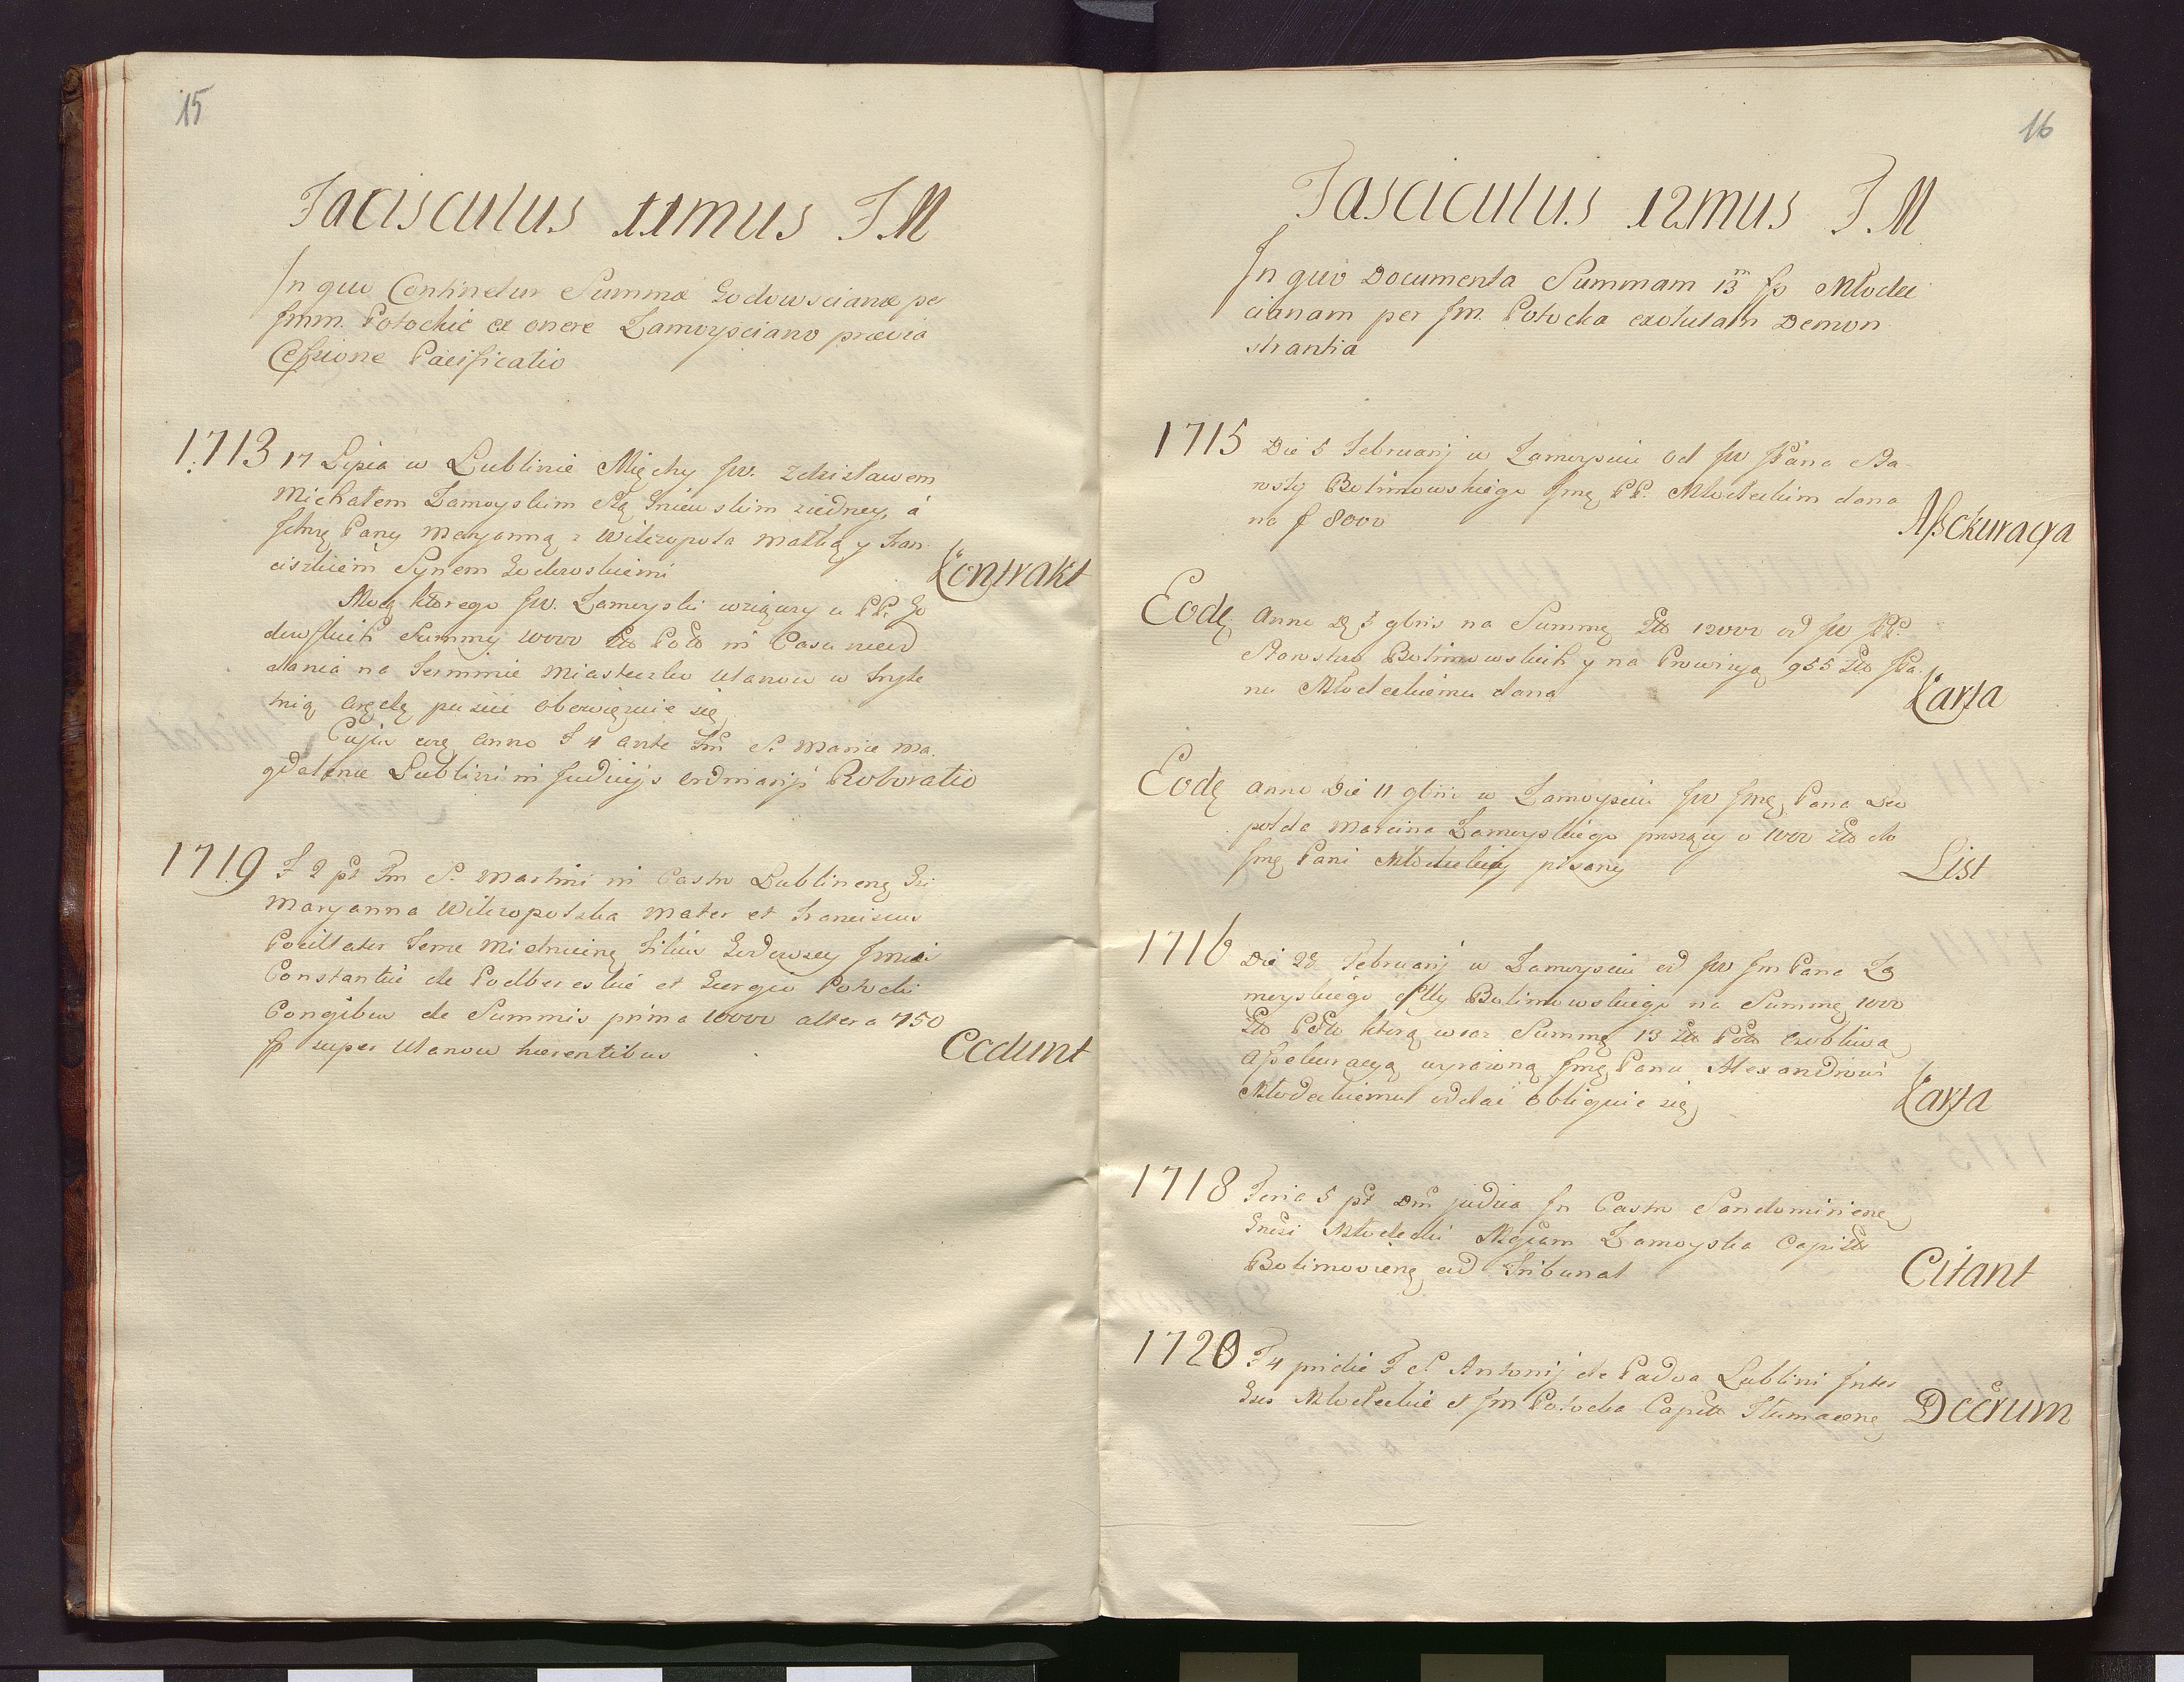 15
Facisculus 11mus F. M
In quo Continetur Summæ Godowscianæ per
Jmm. Potockie ex onere Zamoysciano prævia
Cessione Pacificatio
1713 17 Lipca w Lublinie Między Jw. Zdzisławem
Michałem Zamoyskim Stą Gniewskim ziedney, á
Paną Maryanną z Wilczopola Matką y Fran
ciszkiem Synem Godowskiemi
Kontrakt
Mocą ktorego Jw. Zamoyski wziąwszy u PP. Go
dowskich Summy 10000 Zło Polo in Casu nieod
dania na Terminie Miasteczko Ulanow w Tryle
tnią Arędę puscic obowięzuie się
Cujus eoq anno F 4 ante Fm S. Mariæ Ma
gdalenæ Lublini in Judicijs ordinarijs Roboratio
1719 F 2 pt Fm S. Martini in Castro Lublineng Gsi
Maryanna Wilczopolska Mater et Franciscus
Pocillator Terræ Mielniceng Filius Godowscy Jmcis
Constantiæ de Podbereskie et Georgio Potocki
Congibus de Summis prima 10000 altera 750
fp super Ulanow hærentibus
Cedunt
16
Fasciculus 12mus F. M
In quo Documenta Summam 13m fp Młodec
cianam per Jm. Potocka exolutam Demon
strantia
1715 Die 5 Februarij w Zamoysciu od Jw JPana Sta
rosty Bolimowskiego Jmę PP. Młodeckim dana
na f 8000
Assekuracya
Eodę Anno D 5 gbris na Summę Zło 12000 od Jw JPP.
Starostwa Bolimowskich y na Prowizyą 955 Zło JPa
nu Młodeckiemu dana
Karta
Eodę anno Die 11 gbris w Zamoysciu Jw Jmę Pana Leo
polda Marcina Zamoyskiego proszący o 1000 Zło do
Jmę Pani Młodeckiey pisany
List
1716 Die 28 Februarij w Zamoysciu od Jw Jm Pana Za
moyskiego Stty Bolimowskiego na Summę 1000
Zło Polo ktorą wraz Summę 13 Zło Polo osobliwą
Assekuracyą wyrazoną Jmę Panu Alexandrowi
Młodeckiemu oddać obliguie się
Karta
1718 Feria 5 pt Dm judica In Castro Sandomirieng
Gnesi Młodecki Mgcam Zamoyska Capitt
Bolimovieng ad Tribunal
Citant
1720 F 4 pridie F S. Antonij de Padva Lublini Inter
Gsos Młodeckie et Jm Potocka Capitt Tłumaceng
Decrum